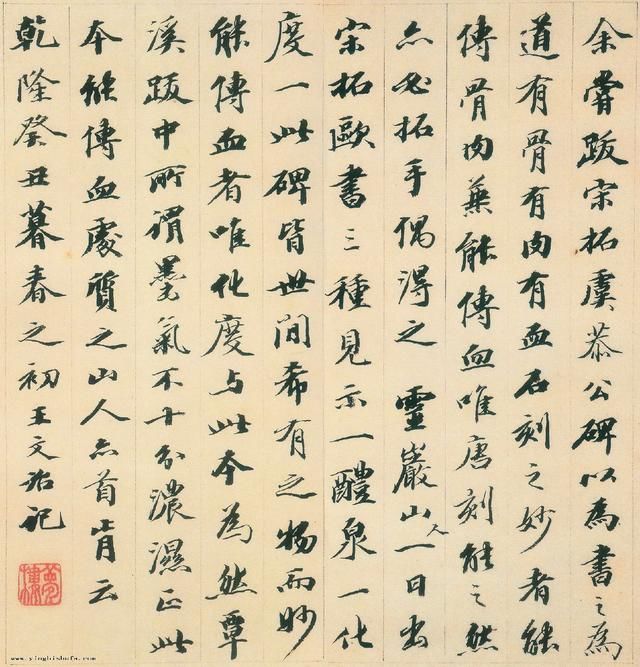 余嘗跋宋拓虞恭公碑以為書之為
道有骨有肉有血石刻之妙者能
傳骨肉兼能傳血唯唐刻能之然
亦必拓手偶得之　靈巖山人一日出
宋拓歐書三種見示一醴泉一化
度一此碑皆世間希有之物而妙
能傳血者唯化度与此本為然覃
溪跋中所謂墨氣不十分濃濕正此
本能傳血處質之山人亦首肯云
乾隆癸丑暮春之初王文治記
夢樓
www.yingbishufa.com